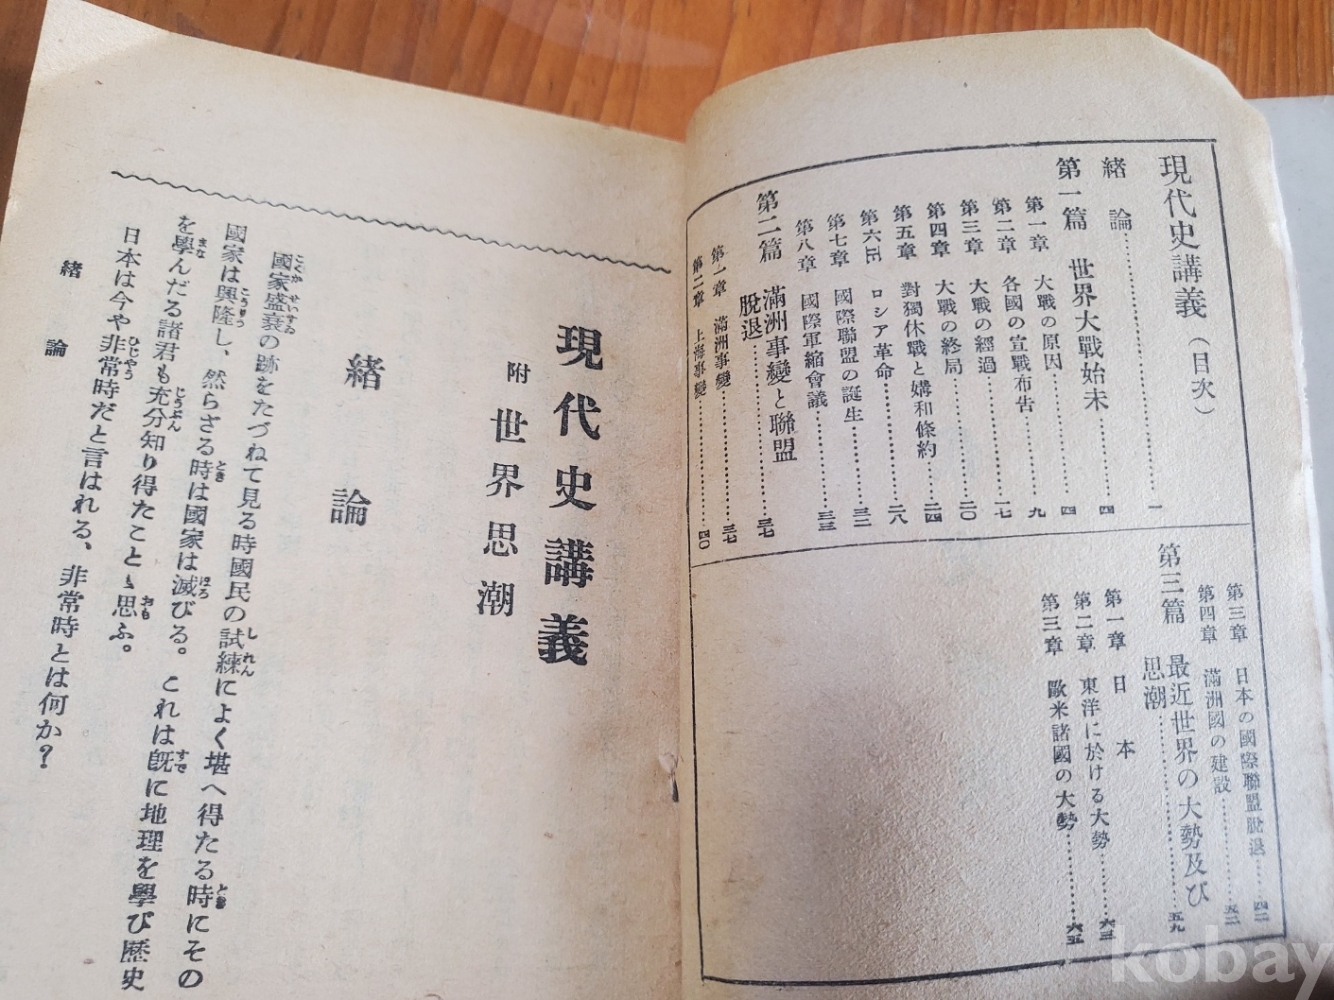 現代史講義(目次)
緒論……………一
第一篇 世界大戰始末……四
第一章 大戰の原因……四
第二章 各國の宣戰布告……九
第三章 大戰の經過……一七
第四章 大戰の終局……二〇
第五章 對獨休戰と媾和條約……二四
第六章 ロシア革命……二八
第七章 國際聯盟の誕生……三二
第八章 國際軍縮會議……三三
第二篇 滿洲事變と聯盟
脫退……三七
第一章 滿洲事變……三七
第二章 上海事變……四〇
第三章 日本の國際聯盟脫退……四二
第四章 滿洲國の建設……五二
第三篇 最近世界の大勢及び
思潮……五九
第一章 日本
第二章 東洋に於ける大勢……六三
第三章 歐米諸國の大勢……六五
現代史講義
附 世界思潮
緒論
國家盛衰の跡をたづねて見る時國民の試練によく堪へ得たる時にその
國家は興隆し、然らざる時は國家は滅びる。これは旣に地理を學び歷史
を學んだる諸君も充分知り得たことゝ思ふ。
日本は今や非常時だと言はれる、非常時とは何か?
緒論
kobay